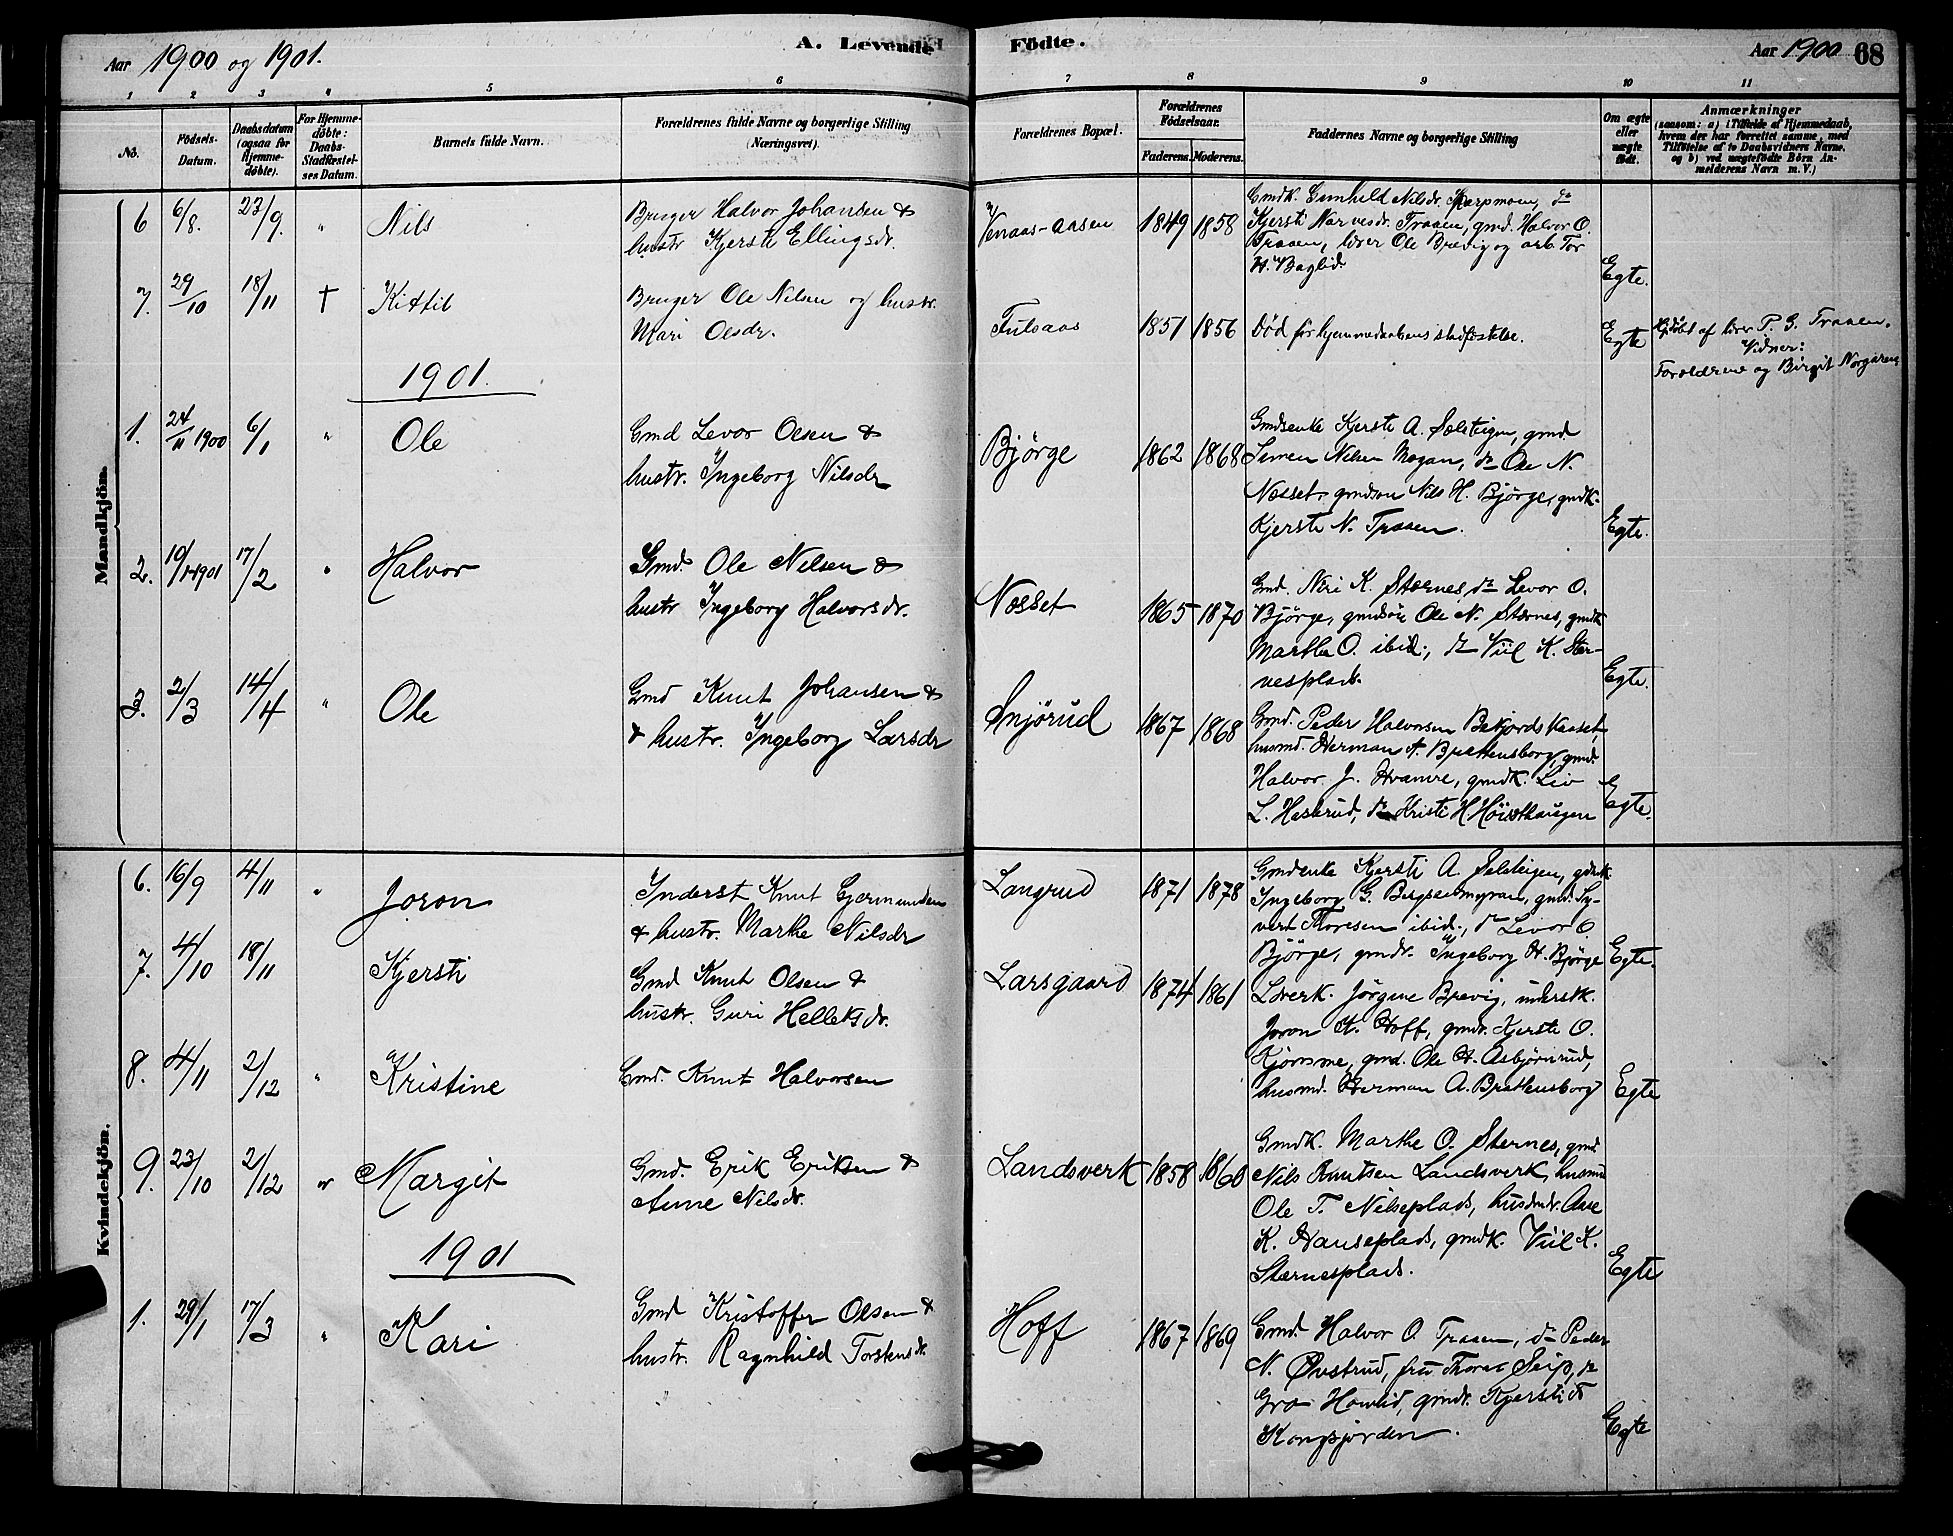 Aar 1900 og 1901.
A. Levende
Födte.
Aar 1900
68
1 2 3 4 5 6 7 8 9 10 11
No.
Födsels-
Datum.
Daabsdatum
(ogsaa for
Hjemme-
döbte).
For Hjemme-
döbte:
Daabs-
Stadfæstel-
ses Datum.
Barnets fulde Navn.
Forældrenes fulde Navne og borgerlige Stilling
(Næringsvei).
Forældrenes Bopæl.
Forældrenes
Födselsaar.
Faderens.
Moderens.
Faddernes Navne og borgerlige Stilling
Om ægte
eller
uægte
födt.
Anmærkninger
(saasom: a) i Tilfælde af Hjemmedaab,
hvem der har forrettet samme, med
Tilföielse af to Daabsvidners Navne,
og b) ved uægtefödte Börn An-
melderens Navn m. V.)
Mandkjön.
6 6/8. 23/9. " Nils
Bruger Halvor Johansen &
hustr Kjersti Ellingsdr.
Venaas-aasen 1849 1858
Gmdk. Gunhild Nilsdr.
Kjersti Narvesdr. Traaen, gmd. Halvor O.
Traaen, lærer Ole Brevig og arb. Tor
H. Baglid.
Egte.
7. 29/10 18/11 † Kittil
Bruger Ole Nilsen og hustr.
Mari Olsdr.
Fulsaas 1851 1856
Död för hjemmedaabens stadfæstelse.
Egte
Hjdöbt af lærer P. G. Traaen.
Vidner:
Forældrene og Birgit
1901.
1. 24/11 1900 6/1 " Ole
Gmd Levor Olsen &
hustr. Ingeborg Nilsdr
Björge 1862 1868
Gmdsenke Kjersti A. Sælsteigen, gmd
Simen Nilsen Mogan, do Ole N.
Næsset, gmdsøn Nils H. Björge, gmdk.
Kjersti N. Traaen.
Egte.
2. 19/1 1901 17/2 " Halvor
Gmd. Ole Nilsen &
hustr Ingeborg Halvorsdr.
Næsset 1865 1870
Gmd. Niri K. Stærnes, do Levor O.
Björge, gmdsön Ole N. Stærnes, gmdk
Marthe O. ibid., do Viil K. Stær-
nesplads.
Egte.
3. 2/3 14/4 " Ole
Gmd Knut Johansen &
& hustr. Ingeborg Larsdr
Snjörud 1867 1868
Gmd. Peder Halvorsen
husmd. Herman A. Brattensborg, gmd.
Halvor J. Hvamre, gmdk. Liv
L. Haskrud, do Kristi H
Egte.
Kvindekjön.
6. 16/9 4/11 " Joron
Inderst Knut Gjermundsen
& hustr. Marthe Nilsdr
Langrud 1871 1878
Gmdenke Kjersti A. Sælsteigen, gdmk
Ingeborg G. Bergsetmyran, gmd. Sy-
vert Thoresen ibid., do Levor O.
Björge, gmdr. Ingeborg H. Björge
Egte.
7. 4/10 18/11 Kjersti
Gmd Knut Olsen &
hustr. Guri Helleksdr.
Larsgaard 1874 1861
Lærerk. Jörgine Brevig, inderstk.
Joron K. Hoff, gmdr. Kjersti O.
Kjømme, gmd. Ole H. Asbjörnrud,
husmd. Herman A. Brattensborg
Egte
8. 4/11 2/12 " Kristine
Gmd. Knut Halvorsen
9. 23/10 2/12 " Margit
Gmd. Erik Eriksen &
Anne Nilsdr.
Landsverk 1858 1860
Gmdk. Marthe O. Stærnes, gmd.
Nils Knutsen Landsverk, husmd
Ole T. Nilseplads, husmdr. Aase
K. Hanseplads, gmdk. Viil K.
Stærnesplads.
Egte
1901
1. 29/1 17/3 " Kari
Gmd Kristoffer Olsen &
hustr. Ragnhild Torstensdr.
Hoff 1867 1869
Gmd. Halvor O. Traaen, do Peder
N. Øvstrud, fru Thora Seip, do
Gro Howlid, gmdr. Kjersti
Kongsjorden.
Egte